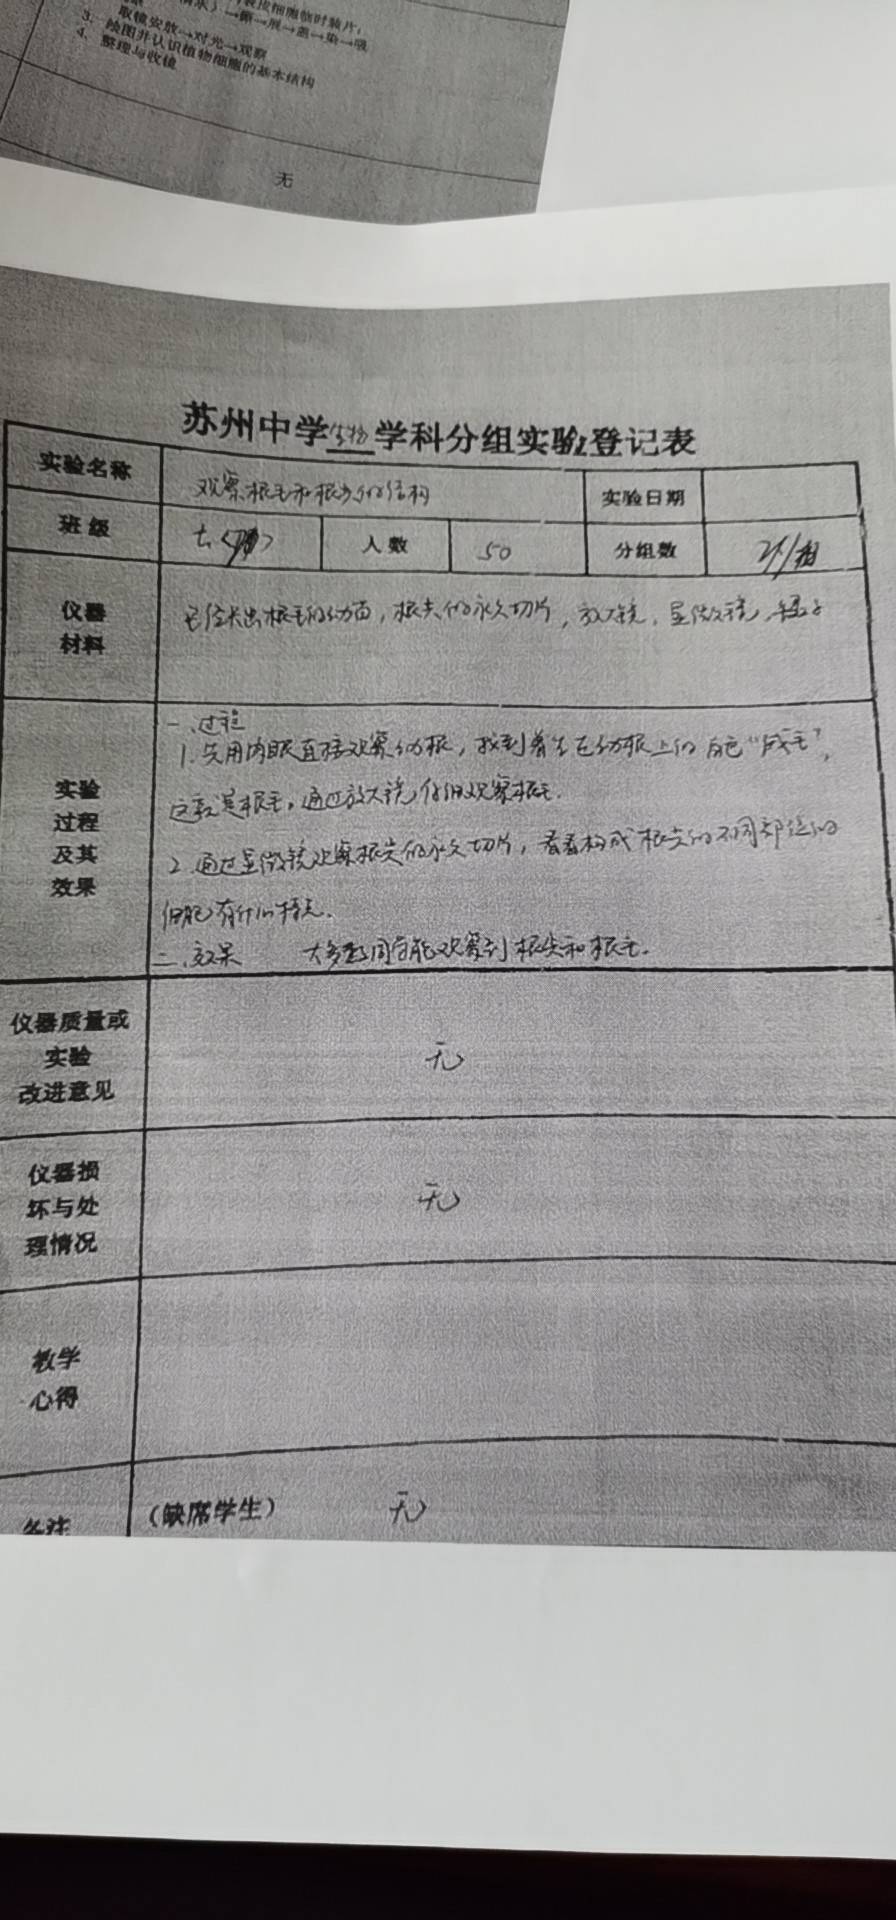 装皮细胞临时装片,
清水)→撕→展→盖→染→吸
取镜安放→对光→观察
3. 绘图并认识植物细胞的基本结构
4. 整理与收镜
无
苏州中学生物学科分组实验登记表
实验名称 观察根毛和根尖的结构 实验日期
班级 七 人数 50 分组数
仪器
材料
已经长出根毛的幼苗,根尖的永久切片,放大镜,显微镜,镊子
实验
过程
及其
效果
一、过程
1.先用肉眼直接观察幼根,找到着生在幼根上的白色“绒毛”,
这就是根毛,通过放大镜仔细观察根毛.
2.通过显微镜观察根尖的永久切片,看看构成根尖的不同部位的
细胞有什么特点.
二、效果 大多数同学能观察到根尖和根毛.
仪器质量或
实验
改进意见
无
仪器损
坏与处
理情况
无
教学
心得
备注 (缺席学生) 无